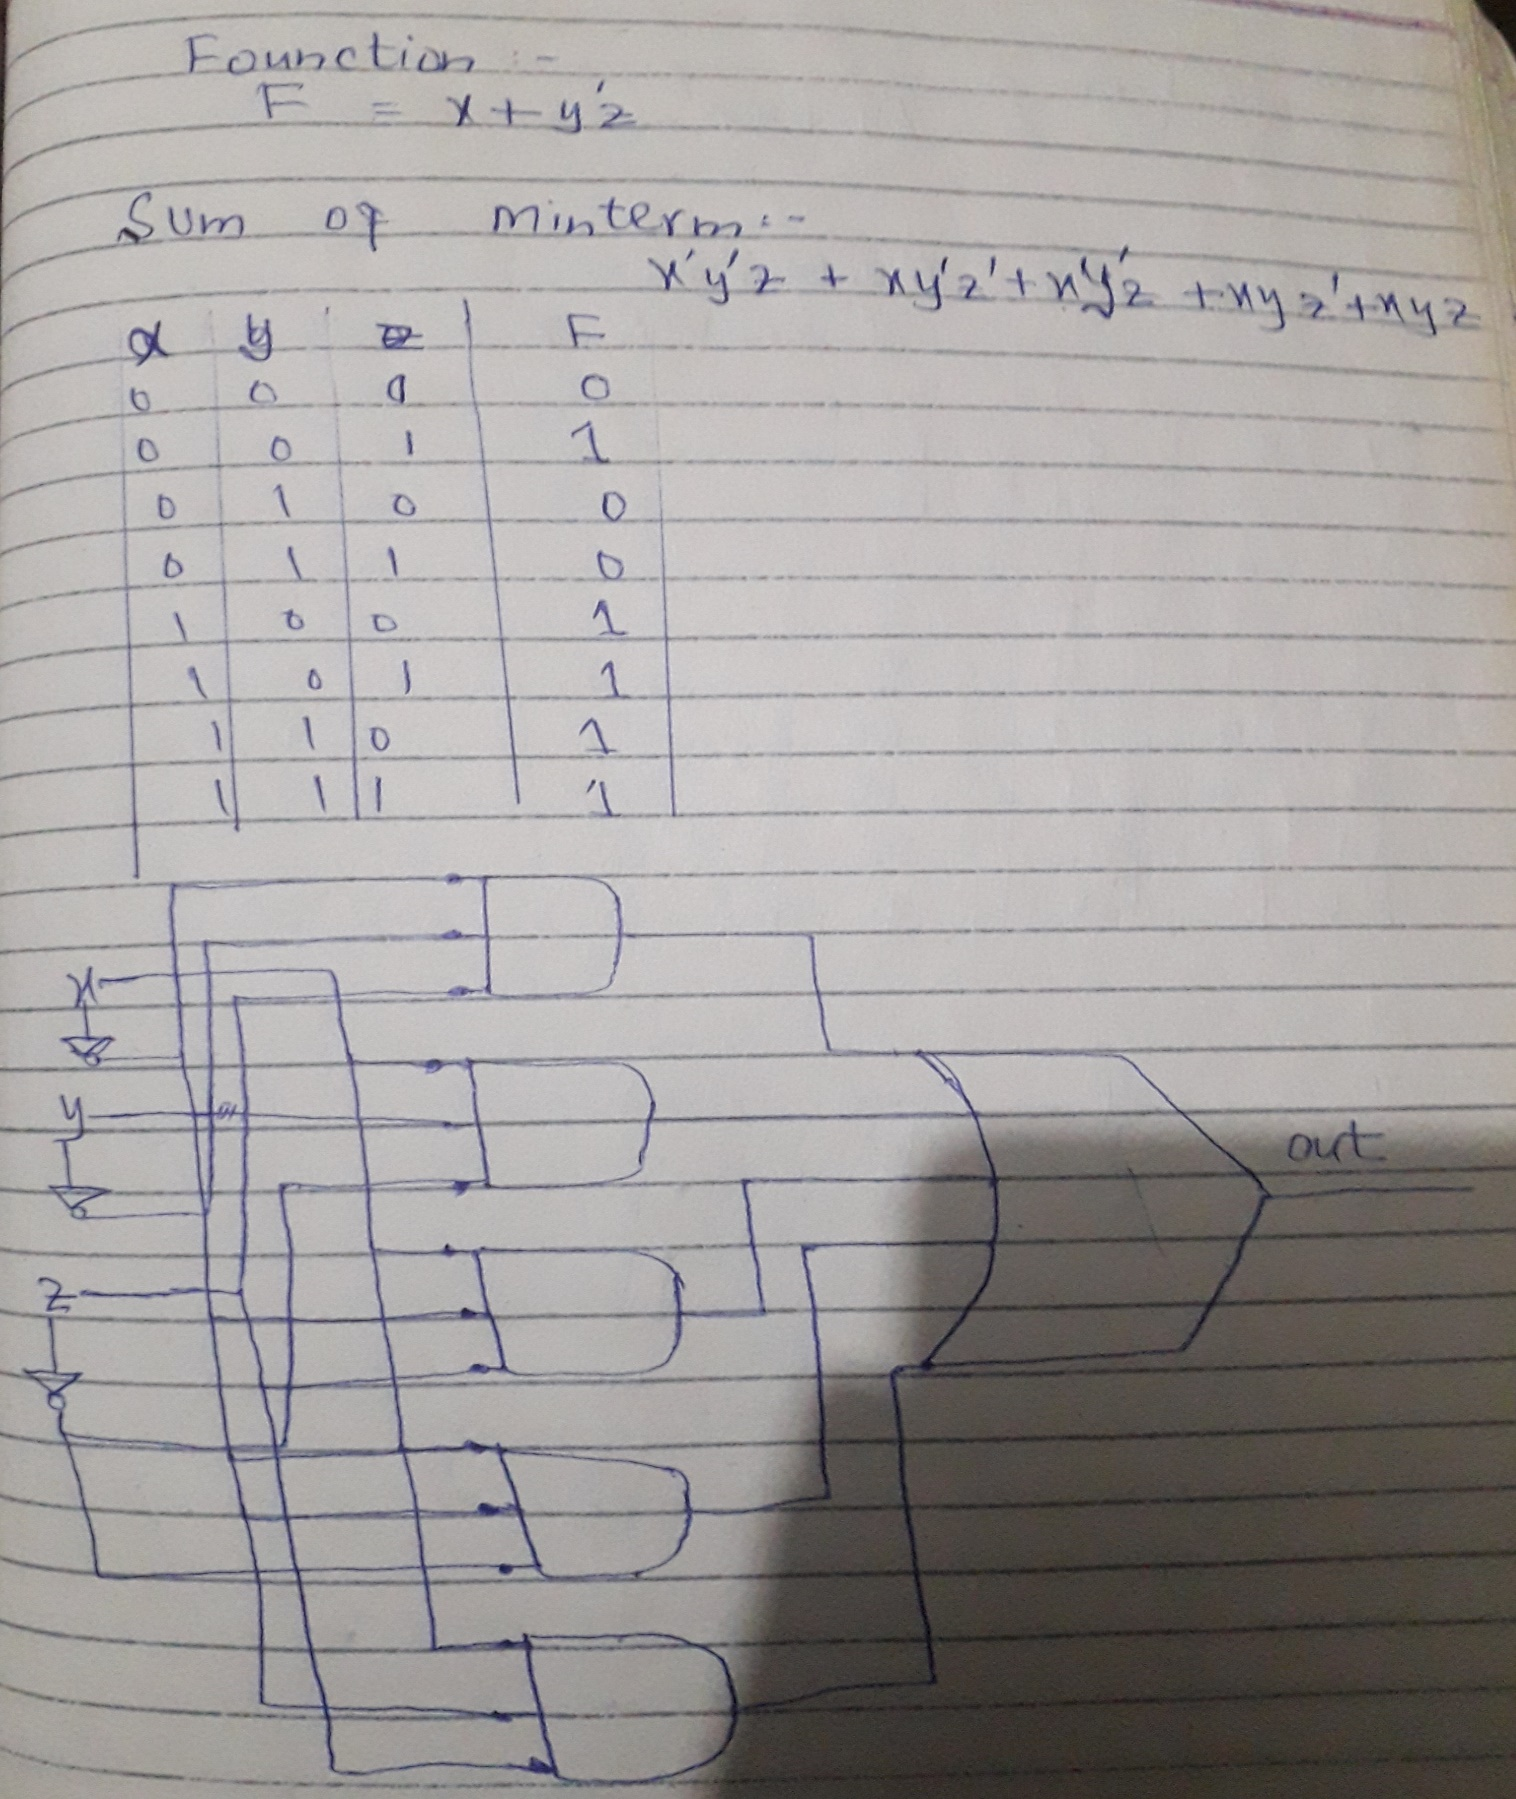 Founction :-
F = x + y'z
Sum of minterm :-
x'y'z + xy'z' + x'y'z + xyz' + xyz
x y z F
0 0 0 0
0 0 1 1
0 1 0 0
0 1 1 0
1 0 0 1
1 0 1 1
1 1 0 1
1 1 1 1
x
y
out
z